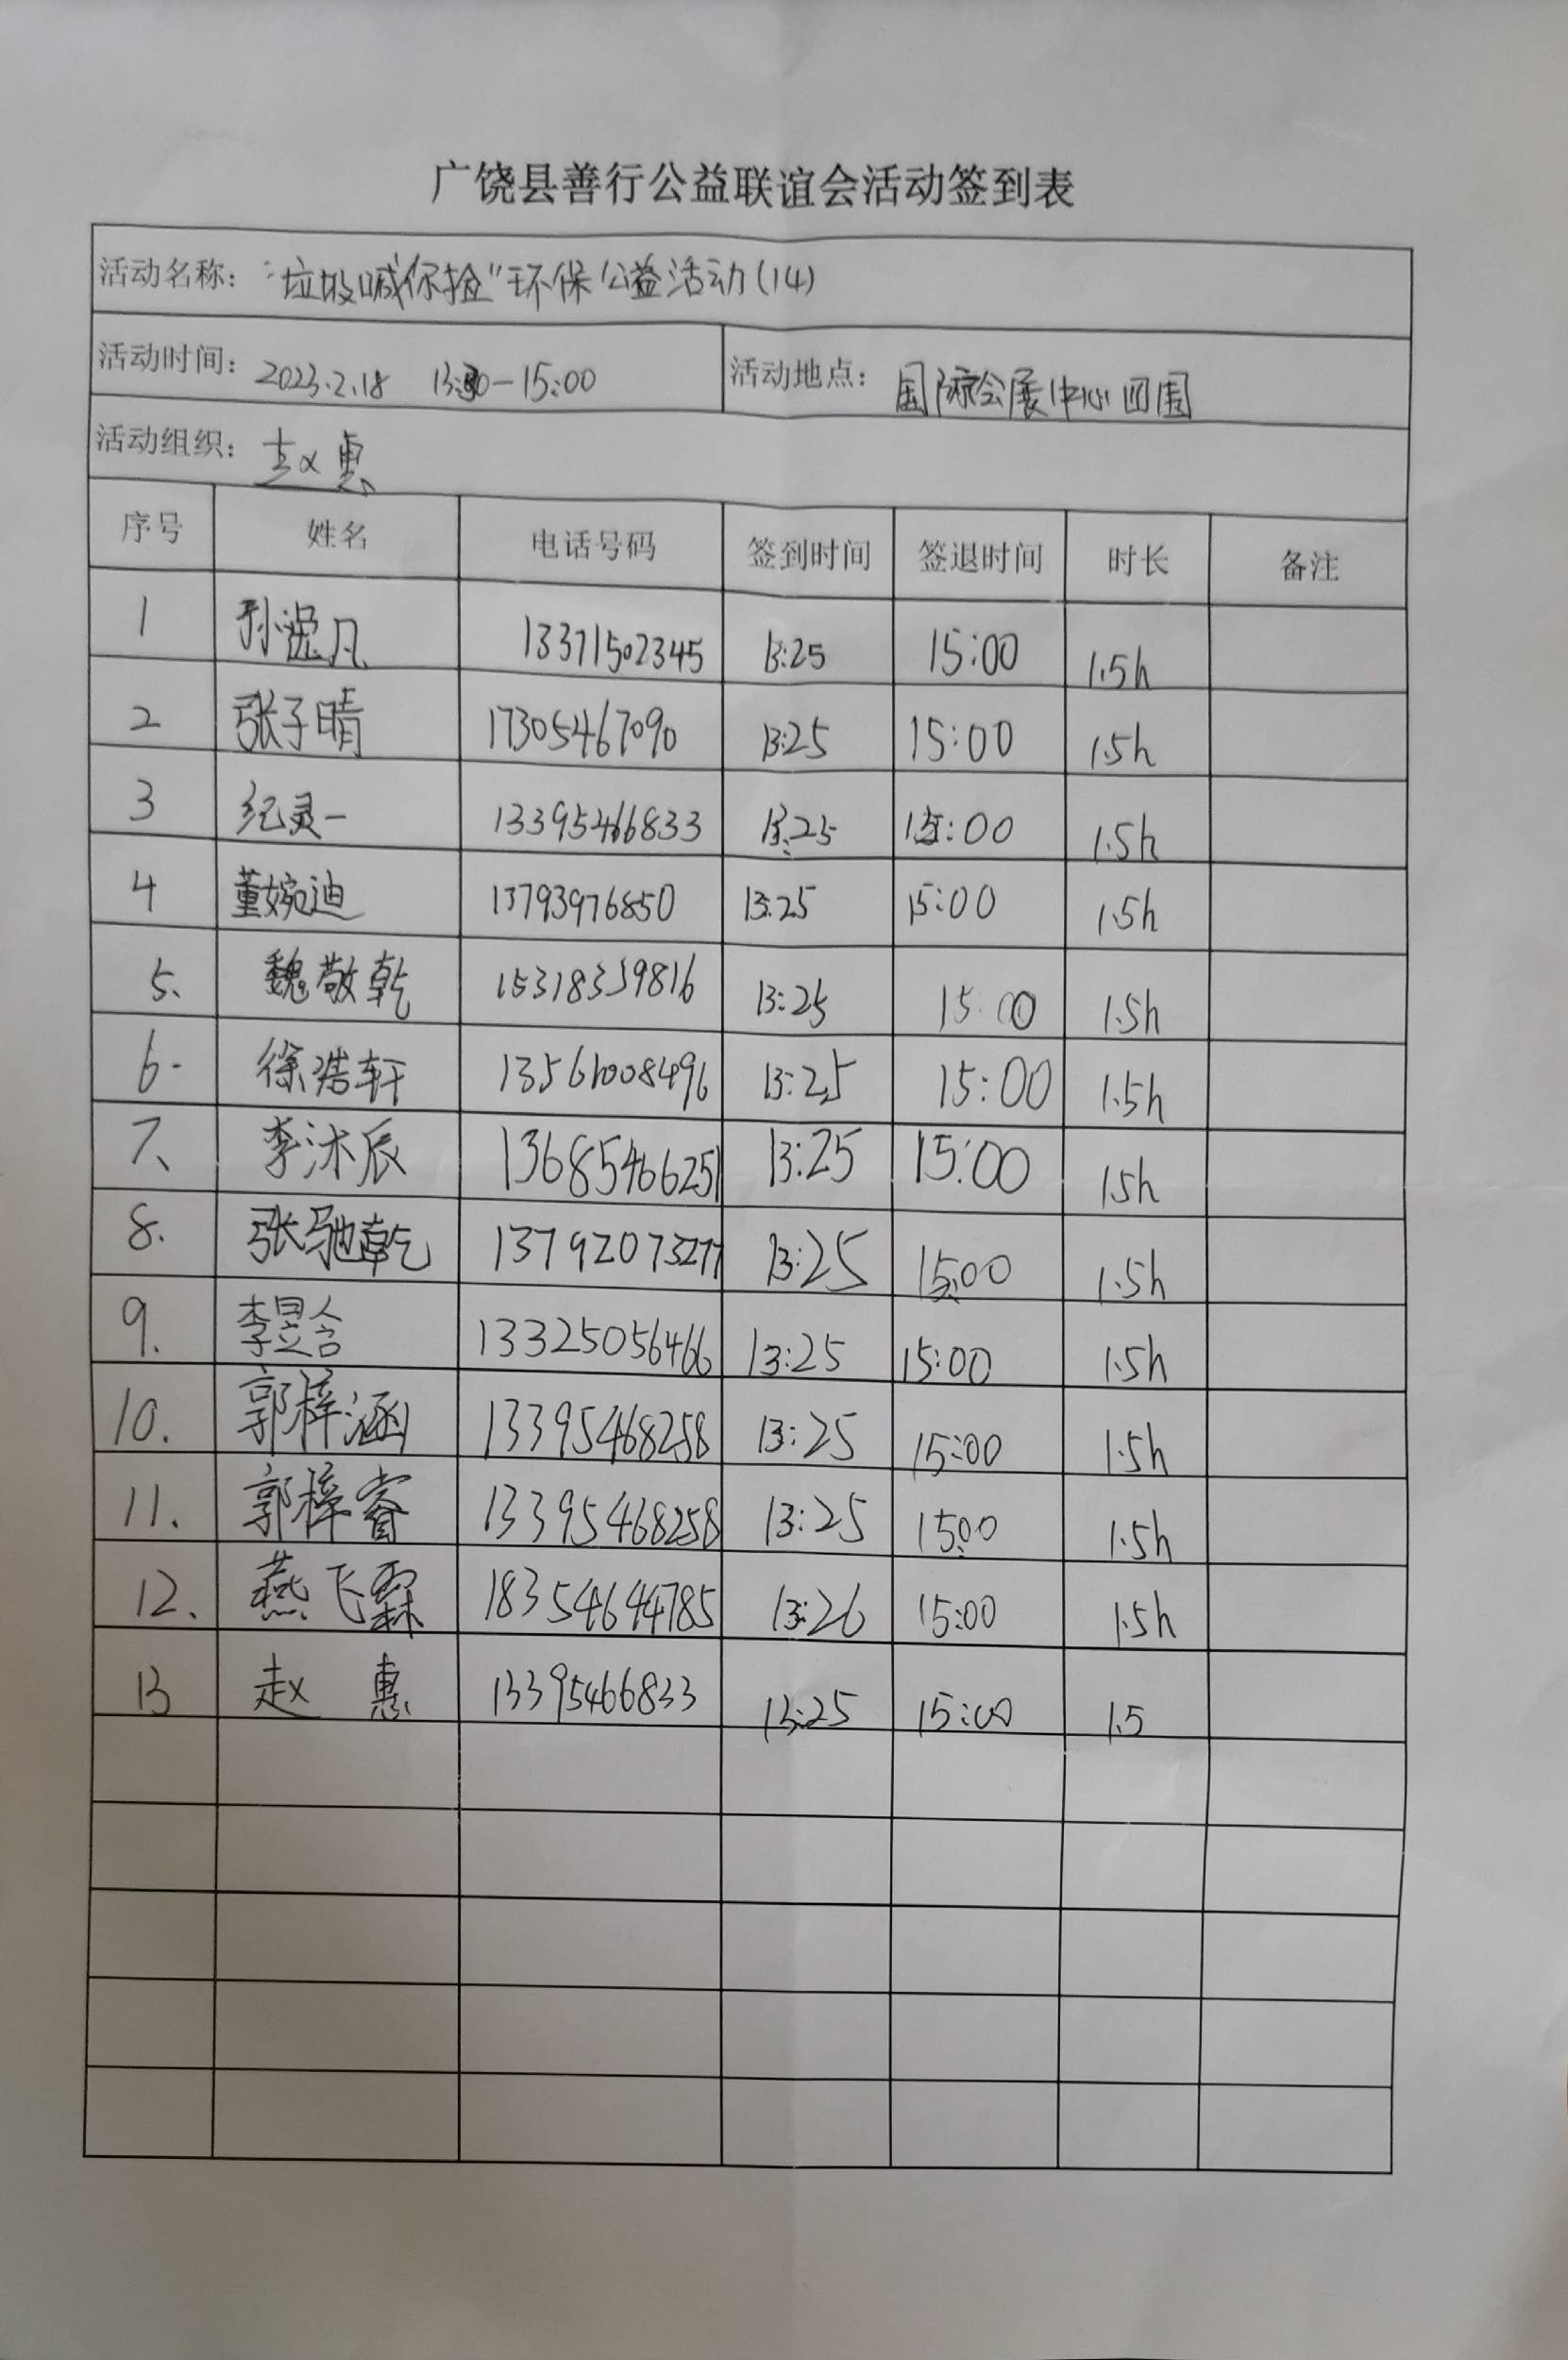 广饶县善行公益联谊会活动签到表
活动名称： “垃圾喊你捡”环保公益活动(14)
活动时间： 2023.2.18 13:30-15:00 活动地点： 国际会展中心四围
活动组织： 赵惠
序号 姓名 电话号码 签到时间 签退时间 时长 备注
1 孙滢凡 13371502345 13:25 15:00 1.5h
2 张子晴 17305467090 13:25 15:00 1.5h
3 纪灵一 13395466833 13:25 15:00 1.5h
4 董婉迪 13793976850 13:25 15:00 1.5h
5、 魏敬乾 15318339816 13:25 15:00 1.5h
6. 徐浩轩 13561008496 13:25 15:00 1.5h
7、 李沐辰 13685466251 13:25 15:00 1.5h
8. 张驰乾 13792073277 13:25 15:00 1.5h
9. 李昱含 13325056466 13:25 15:00 1.5h
10. 郭梓涵 13395468258 13:25 15:00 1.5h
11. 郭梓睿 13395468258 13:25 15:00 1.5h
12. 燕飞霖 18354644785 13:26 15:00 1.5h
13 赵惠 13395466833 13:25 15:00 1.5